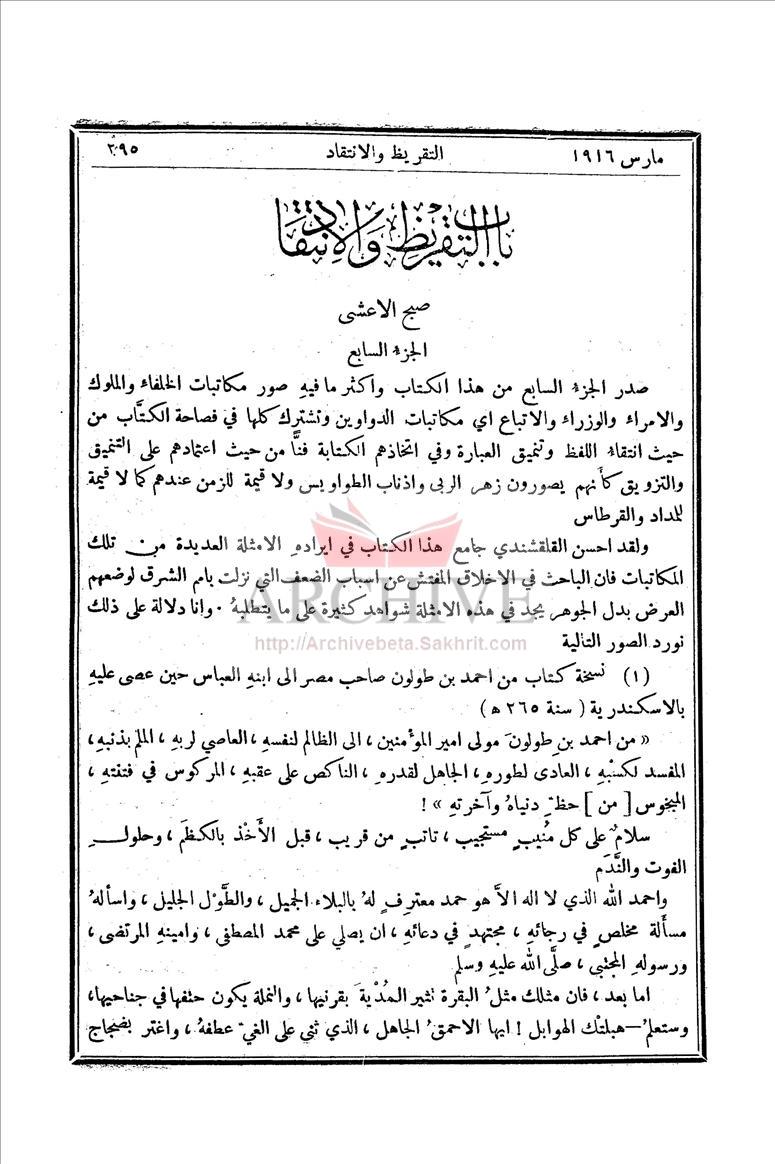 مارس ١٩١٦ التقريظ والانتقاد ٢٩٥
باب التقريظ والانتقاد
صبح الاعشى
الجزء السابع
صدر الجزء السابع من هذا الكتاب واكثر ما فيهِ صور مكاتبات الخلفاء والملوك
والامراء والوزراء والاتباع اي مكاتبات الدواوين وتشترك كلها في فصاحة الكتَّاب من
حيث انتقاء اللفظ وتنميق العبارة وفي اتخاذهم الكتابة فنًّا من حيث اعتمادهم على التنميق
والتزويق كأنهم يصورون زهر الربى واذناب الطواويس ولا قيمة للزمن عندهم كما لا قيمة
للمداد والقرطاس
ولقد احسن القلقشندي جامع هذا الكتاب في ايراده الامثلة العديدة من تلك
المكاتبات فان الباحث في الاخلاق المفتش عن اسباب الضعف التي نزلت بامم الشرق لوضعهم
العرض بدل الجوهر يجد في هذه الامثلة شواهد كثيرة على ما يتطلبهُ . وانا دلالة على ذلك
نورد الصور التالية
ARCHIVE
http://Archivebeta.Sakhrit.com
(١) نسخة كتاب من احمد بن طولون صاحب مصر الى ابنهِ العباس حين عصى عليهِ
بالاسكندرية ( سنة ٢٦٥ ه )
« من احمد بن طولونَ مولى امير المؤمنين ، الى الظالم لنفسهِ ، العاصي لربهِ ، الملمّ بذنبهِ ،
المفسد لكسْبهِ ، العادى لطورهِ ، الجاهل لقدرهِ ، الناكص على عقبهِ ، المركوس في فتنتهِ ،
المبخوس [ من ] حظّ دنياهُ وآخرتهِ » !
سلامٌ على كل مُنيبٍ مستجيب ، تائبٍ من قريب ، قبل الأَخْذ بالكَظَم ، وحلول
الفوت والنَّدَم
واحمد الله الذي لا اله الاَّ هو حمد معترفٍ لهُ بالبلاء الجميل ، والطَّوْل الجليل ، واسألهُ
مسأَلة مخلصٍ في رجائهِ ، مجتهدٍ في دعائهِ ، ان يصلي على محمد المصطفى ، وامينهِ المرتضى ،
ورسولهِ المجتبى ، صلَّى الله عليهِ وسلم
اما بعد ، فان مثلك مثلُ البقرة تثير المُدْيةَ بقرنيها ، والنملة يكون حتفها في جناحيها ،
وستعلمُ — هبلتْك الهوابل ! ايها الاحمقُ الجاهل ، الذي ثنى على الغيّ عطفهُ ، واغتر بضجاج